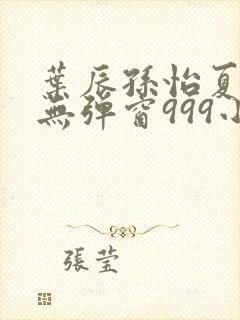 葉辰孫怡夏
無彈窗999小
張莹